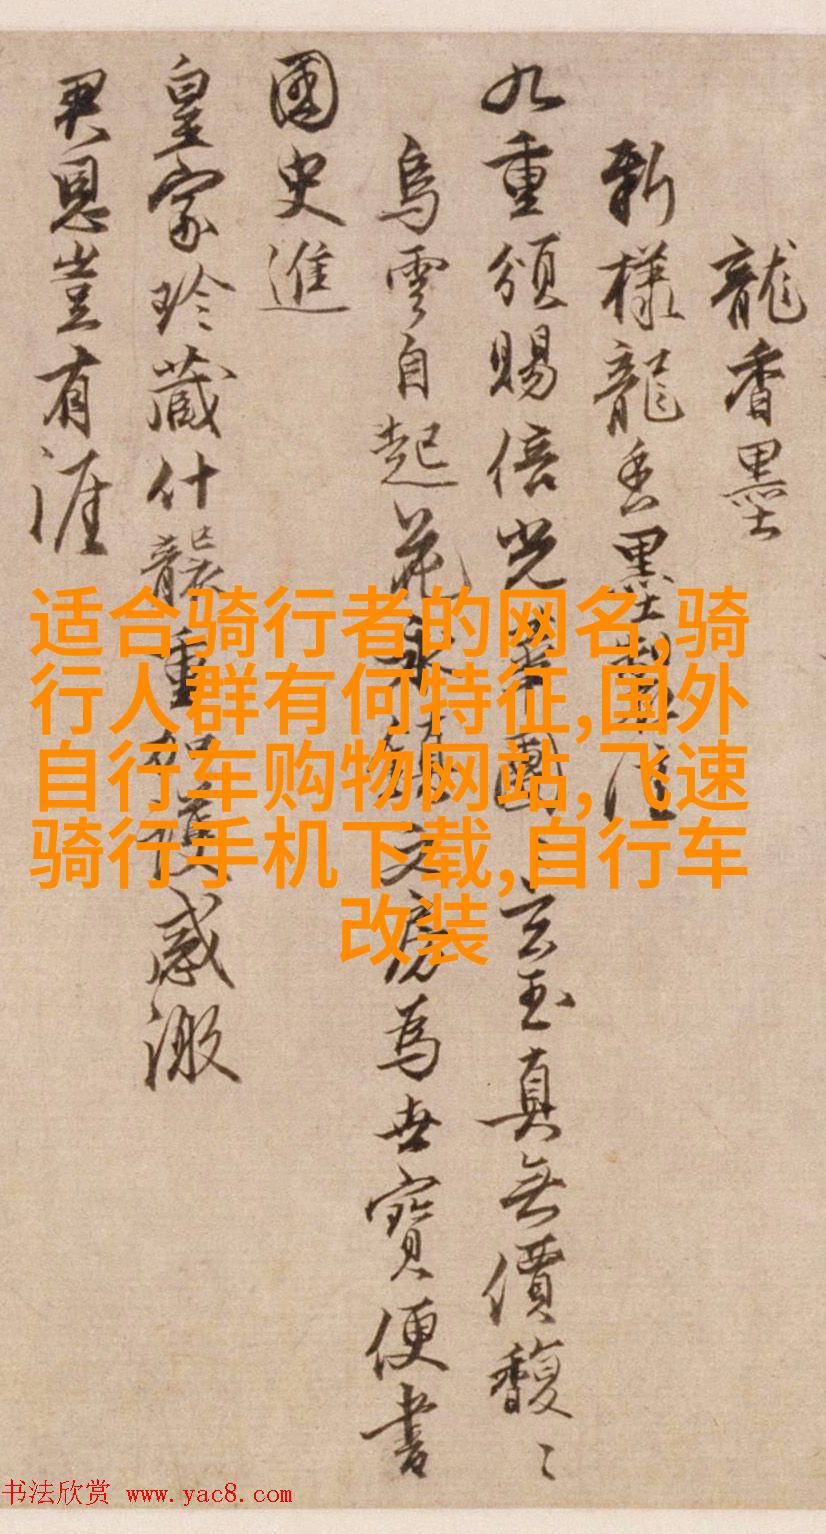 龍香墨
新樣龍香墨
九重頒賜倍光華團玄玉真無價馥〻
烏雲自起花文房為世寶便書
國史進
皇家珍藏什襲重感激
君恩豈有涯
适合骑行者的网名,骑
行人群有何特征,国外
自行车购物网站,飞速
骑行手机下载,自行车
改装
书法欣赏 www.yac8.com